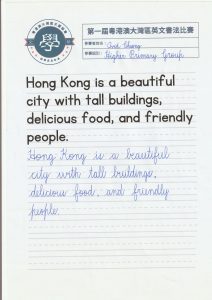 第一屆粵港澳大灣區英文書法比賽
Higher Primary Group
Hong Kong is a beautiful
city with tall buildings,
delicious food, and friendly
people.
Hong Kong is a beautiful
city with tall buildings,
delicious food, and friendly
people.